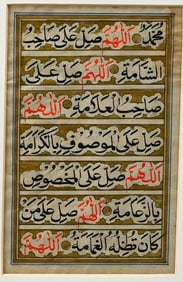 محمد اللهم صل على صاحب
الشامة اللهم صل على
صاحب العلامة اللهم
صل على الموصوف بالكرامة
اللهم صل على المخصوص
بالزعامة اللهم صل على من
كان تظله الغمامة اللهم